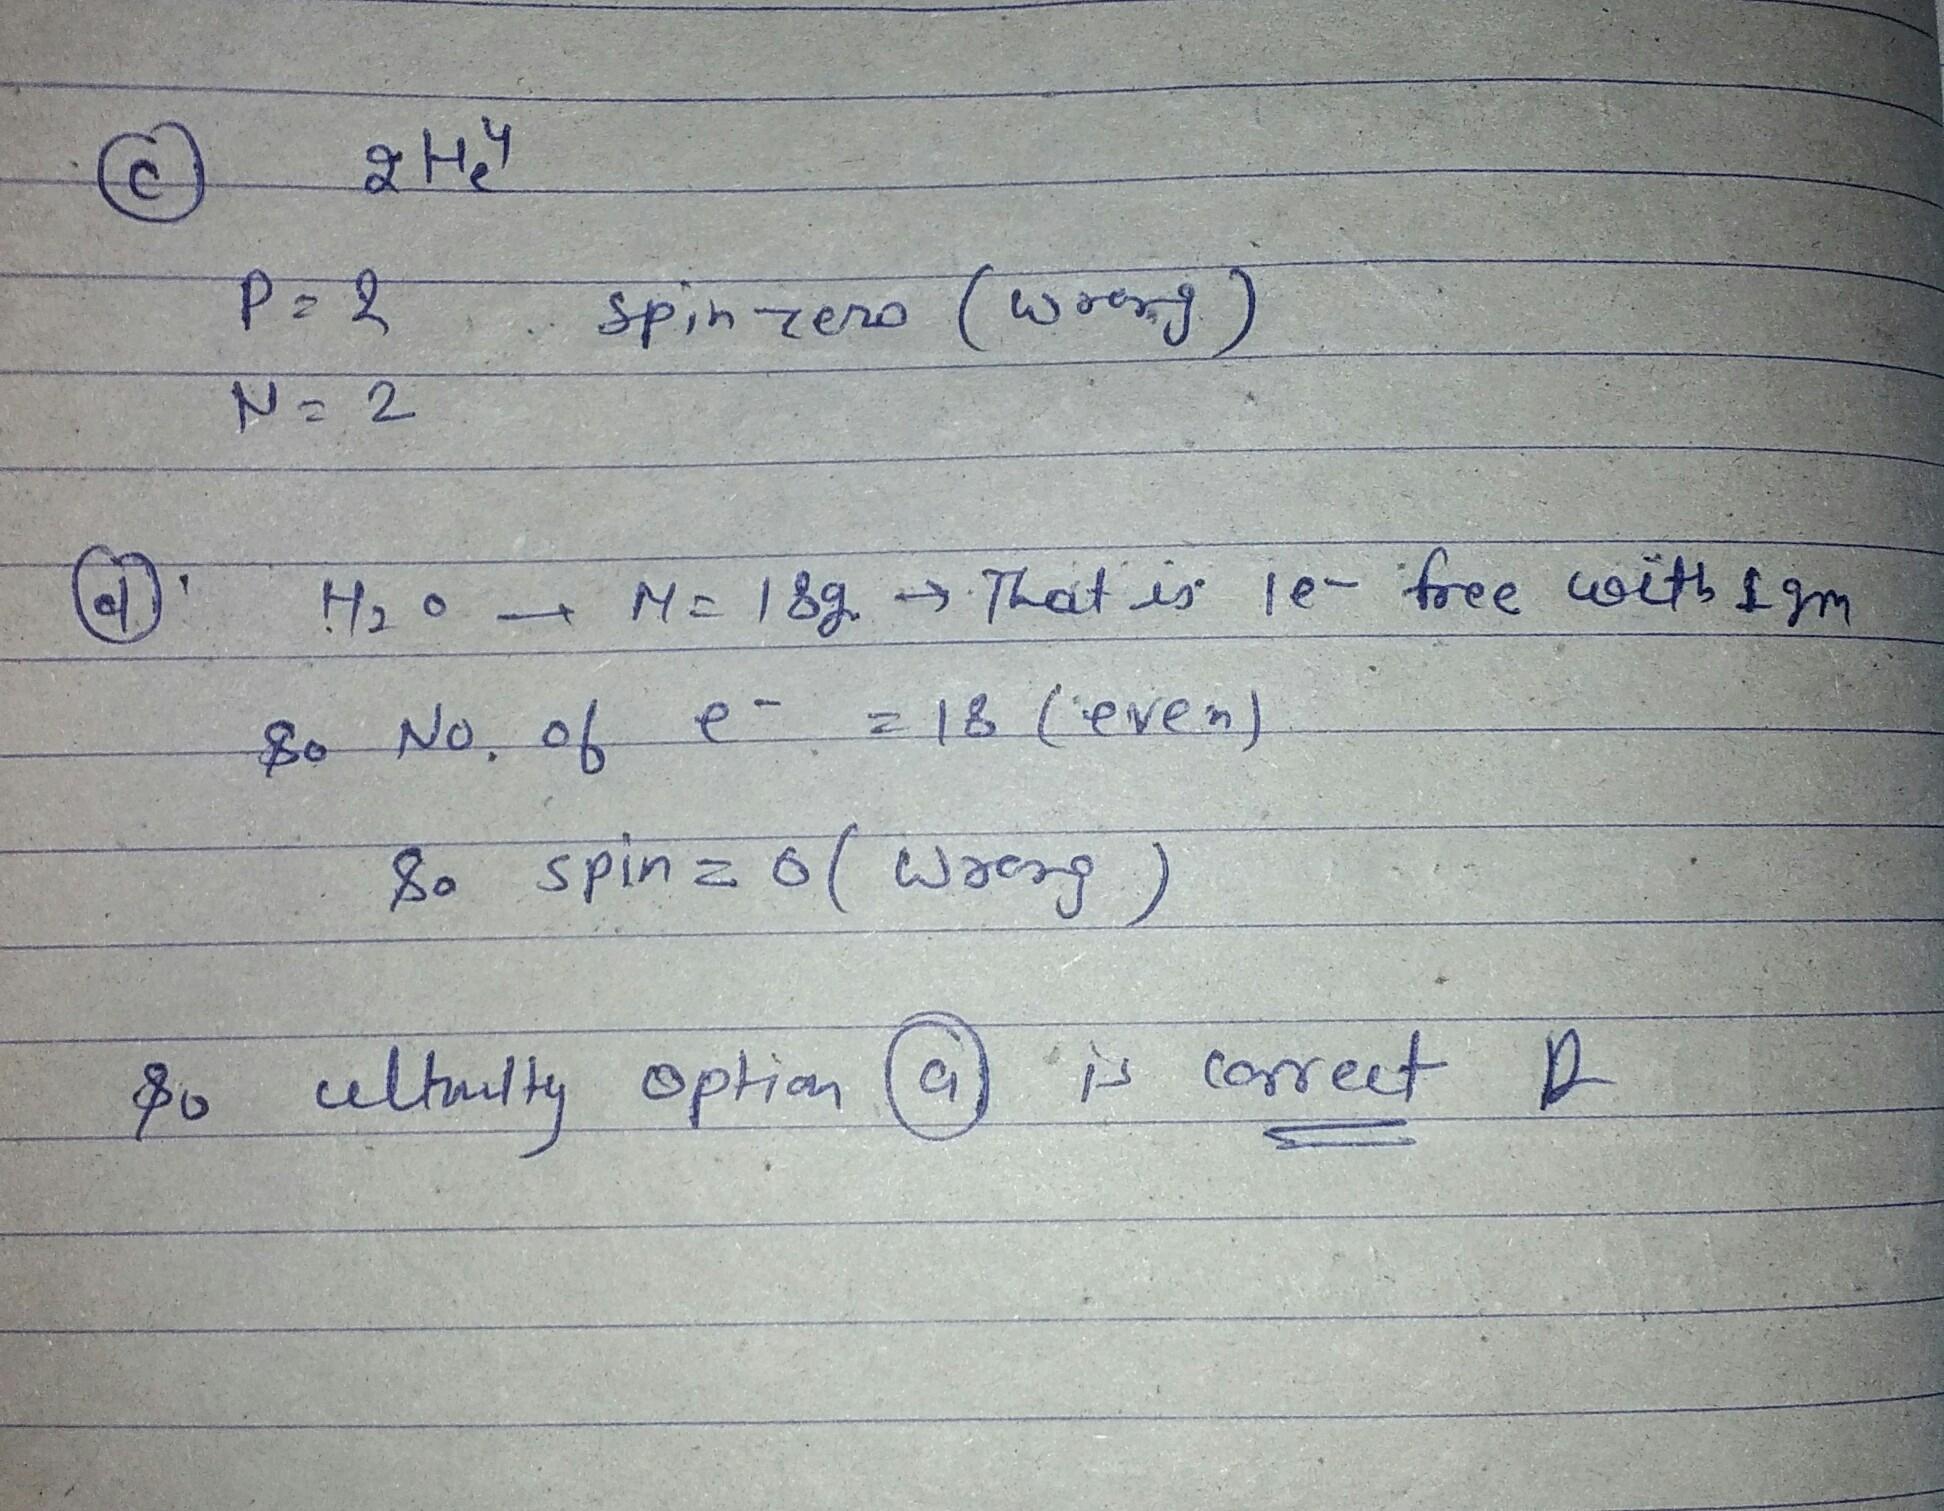 (c) 2He4
P = 2 spin zero (wrong)
N = 2
(d) H2O → M = 18g → That is 1e- free with 1gm
So No. of e- = 18 (even)
So spin = 0 (wrong)
So option (a) is correct